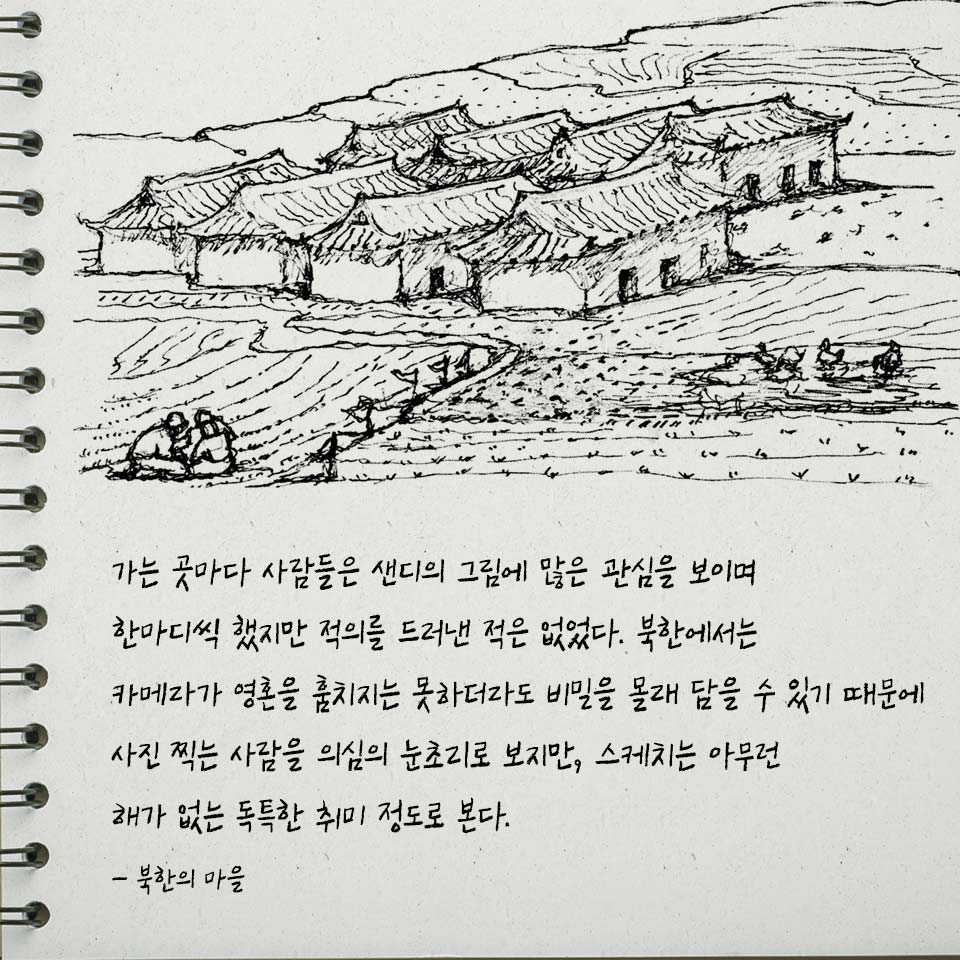 가는 곳마다 사람들은 샌디의 그림에 많은 관심을 보이며
한마디씩 했지만 적의를 드러낸 적은 없었다. 북한에서는
카메라가 영혼을 훔치지는 못하더라도 비밀을 몰래 담을 수 있기 때문에
사진 찍는 사람을 의심의 눈초리로 보지만, 스케치는 아무런
해가 없는 독특한 취미 정도로 본다.
- 북한의 마을